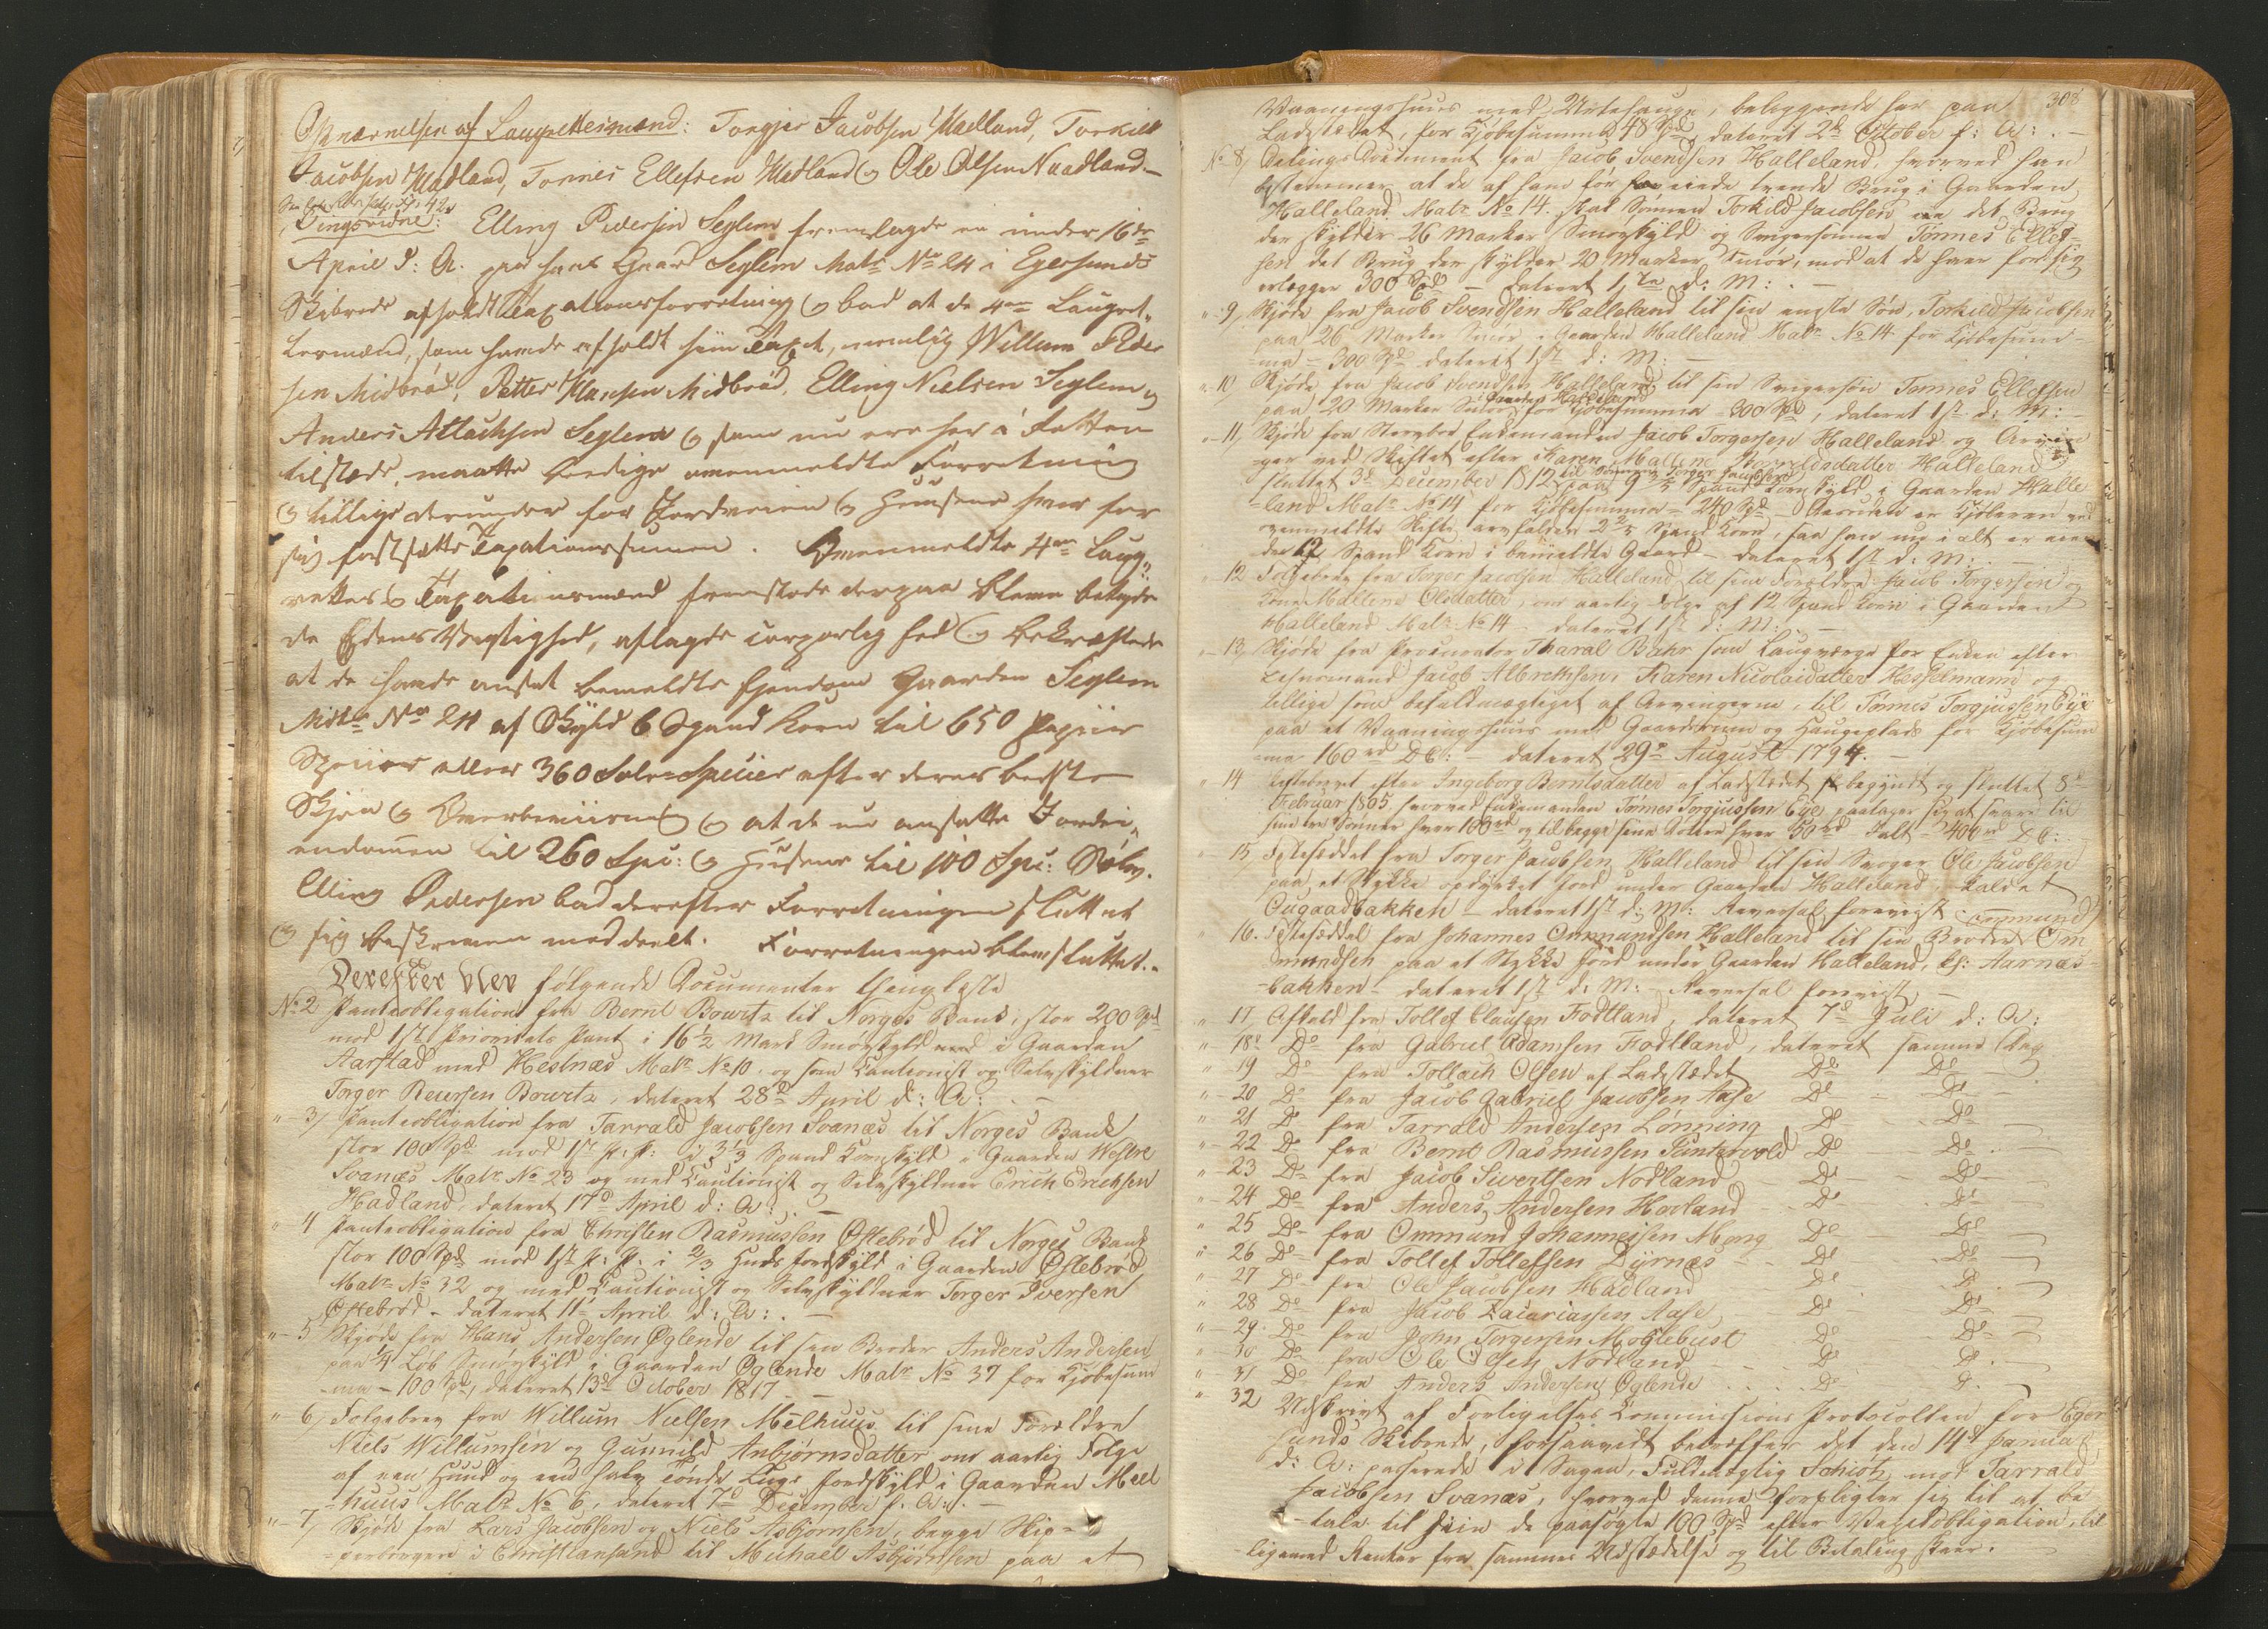 Opnævnelsen af Laugrettesmænd: Torgier Jacobsen Madland, Torkild
Jacobsen Madland, Tønnes Ellefsen Madland og Ole Olsen Naadland.
Tingsvidne: Elling Pedersen Seglem fremlagde en under 16de
April d: A. paa hans Gaard Seglem Matr No 24 i Egersunds
Skibrede afholdt Taxationsforretning og bad at de 4re Laugret-
tesmænd, som havde afholdt sin Taxt, nemlig Willum Peder
sen Midbrød, Petter Hansen Midbrød, Elling Nielsen Seglem og
Anders Attachsen Seglem og som nu ere her i Retten
tilstæde, maatte beedige ommeldte Forretning
og tillige derunder for Jordveien og Huusene hver for
sig fastsætte Taxationssumen. Ommeldte 4re Laug-
rettes og Taxationsmænd fremstode derpaa bleve betyde
de Edens Vigtighed, aflagde corporlig Eed og bekræftede
at de havde ansat bemeldte Ejendom Gaarden Seglem
Matr No 24 af Skyld 6 Spand Korn til 650 Papiir
Species eller 360 Sølv-Species efter deres bedste
Skjøn og Overbeviisning og at de nu ansatte Jordei-
endomen til 260 Spe: og Husene til 100 Spe: Sølv.
Elling Pedersen bad derefter Forretningen sluttet
og sig beskreven meddeelt. Forretningen blev sluttet.
Derefter blev følgende Documenter thinglæste
No 2 Panteobligation fra Bernt Bowitz til Norges Bank, stor 200 Spd
mod 1st Prioritets Pant i 16 1/2 Mark Smørskyld i Gaarden
Aarstad med Hestnæs Matr No 10, og som Cautionist og Selvskyldner
Torger Reiersen Bowitz, dateret 28d April d: A:
" 3, Panteobligation fra Tarrald Jacobsen Svanæs til Norges Bank
stor 100 Spd mod 1st P: P: i 3 1/3 Spand Kornskyld i Gaarden Westre
Svanæs Matr No 23 og med Cautionist og Selvskyldner Erich Erichsen
Hadland, dateret 17d April d: A:
" 4 Panteobligation fra Christen Rasmussen Østebrød til Norges Bank
stor 100 Spd mod 1st P: P: i 2/3 Huds Jordskyld i Gaarden Østebrød
Matr No 32 og med Cautionist og Selvskyldner Torger Iversen
Østebrød - dateret 11t April d: A:
" 5 Skjøde fra Hans Andersen Øglende til sin Broder Anders Andersen
paa 1/4 Løb Smørskyld i Gaarden Øglende Matr No 37 for Kjøbesum
ma - 100 Spd, dateret 13d October 1817
" 6, Følgebrev fra Willum Nielsen Mælhuus til sine Forældre
Niels Willumsen og Gunnild Anbjørnsdatter om aarlig Følge
af een Huud og een halv Tønde Jordskyld i Gaarden Mæl
huus Matr No 6, dateret 7d December f: A:
" 7, Skjøde fra Lars Jacobsen og Niels Asbjørnsen, begge Skip-
perborgere i Christiansand til Michael Asbjørnsen paa et
308
Vaaningshuus med Urtehauge, beliggende her paa
Ladestædet, for Kjøbesumma 48 Spd, dateret 2d October f: A:
No 8, Delings Document fra Jacob Svendsen Halleland, hvorved han
bestemmer at de af ham før eiede tvende Brug i Gaarden
Halleland Matr No 14. skal Sønnen Torkild Jacobsen det Brug
der skylder 26 Marker Smørskyld og Svigersønnen Tønnes Ellef-
sen det Brug der skylder 20 Marker Smør, mod at de hver for sig
erlægger 300 Spd - dateret 1ste d: M:
" 9, Skjøde fra Jacob Svendsen Halleland til sin eneste Søn, Torkild Jacobsen
paa 26 Marker Smør i Gaarden Halleland Matr No 14 for Kjøbesum-
ma - 300 Spd dateret 1st d: M:
" 10 Skjøde fra Jacob Svendsen Halleland til sin Svigersøn Tønnes Ellefsen
i Gaarden Halleland
paa 20 Marker Smør for Kjøbesumma 300 Spd, dateret 1st d: M:
" 11, Skjøde fra Enkemanden Jacob Torgersen Halleland og Arvin
ger ved Skiftet efter Karen Malline Halleland
til Sønnen Torger Jacobsen
sluttet 3d December 1812 paa 9 3/5 Spand Kornskyld i Gaarden Halle
land Matr No 14 for Kjøbesumma - 240 Spd - er Kjøberen ved
ommeldte Skifte arvfalden 2 2/5 Spand Korn, saa han nu i alt er eien
de 12 Spand Korn i bemeldte Gaard - dateret 1st d: M:
" 12 Følgebrev fra Torger Jacobsen Halleland til sine Forældre Jacob Torgersen og
Kone Mallene Olsdatter, om aarlig Følge af 12 Spand Korn i Gaarden
Halleland Matr No 14 - dateret 1st d: M:
" 13, Skjøde fra Procurator Tharal Bahr som Laugværge for Enken efter
Lensmand Jacob Albrethsen, Karen Nicolaidatter Hesselmann og
tillige som befuldmægtiget af Arvingerne, til Tønnes Torgjussen Eye
paa et Vaaningshuus med Gaardsrum og Haugeplads for Kjøbesum
ma 160 rd DC: - dateret 29de August 1794.
" 14 efter Ingeborg Berntsdatter af Ladestædet begyndt og sluttet 8d
Februar 1805, hvorved Enkemanden Tønnes Torgjussen Eye paatager sig at svare til
sine tre Sønner hver 100 rd og til begge sine Døttre hver 50 rd Ialt 400 rd DC:
" 15, Festeseddel fra Torger Jacobsen Halleland til sin Svoger Ole Jacobsen
paa et Stykke opdyrket Jord under Gaarden Halleland, kaldet
Ougaadbakken - dateret 1st d: M: Reversal foreviist
" 16. Festeseddel fra Johannes Ommundsen Halleland til sin Broder Ommund Om
mundsen paa et Stykke Jord under Gaarden Halleland, k: Aarnæs-
bakken - dateret 1st d: M: Reversal foreviist
" 17 Afkald fra Tollef Clausen Fodtland, dateret 7d Juli d: A:
" 18 Do fra Gabriel Adamsen Fodtland, dateret samme Dag
" 19 Do fra Tollach Olsen af Ladestædet Do Do
" 20 Do fra Jacob Gabriel Jacobsen Aase Do Do
" 21 Do fra Tarrald Andersen Lønning Do Do
" 22 Do fra Bernt Rasmussen Puntervold Do Do
" 23 Do fra Jacob Sivertsen Nodland Do Do
" 24 Do fra Anders Andersen Hovland Do Do
" 25 Do fra Ommund Johannessen Mong Do Do
" 26 Do fra Tollef Tollefsen Dyrnæs Do Do
" 27 Do fra Ole Jacobsen Hadland Do Do
" 28 Do fra Jacob Zacariassen Aase Do Do
" 29. Do fra John Torgersen Møglebust Do Do
" 30 Do fra Ole Olsen Nodland Do Do
" 31 Do fra Anders Andersen Øglende Do Do
" 32 Udskrivt af Forligelses Commissions Protocollen for Eger
sunds Skibrede, forsaavidt betræffer det den 14d Januar
d: A: passerede i Sagen, Fuldmægtig Schiøtz mod Tarrald
Jacobsen Svanæs, hvorved denne forpligter sig til at be
tale til hiin de paasøgte 100 Spd efter Vexelobligation, til
ligemed Renter fra sammes Udstædelse og til Betaling skeer.